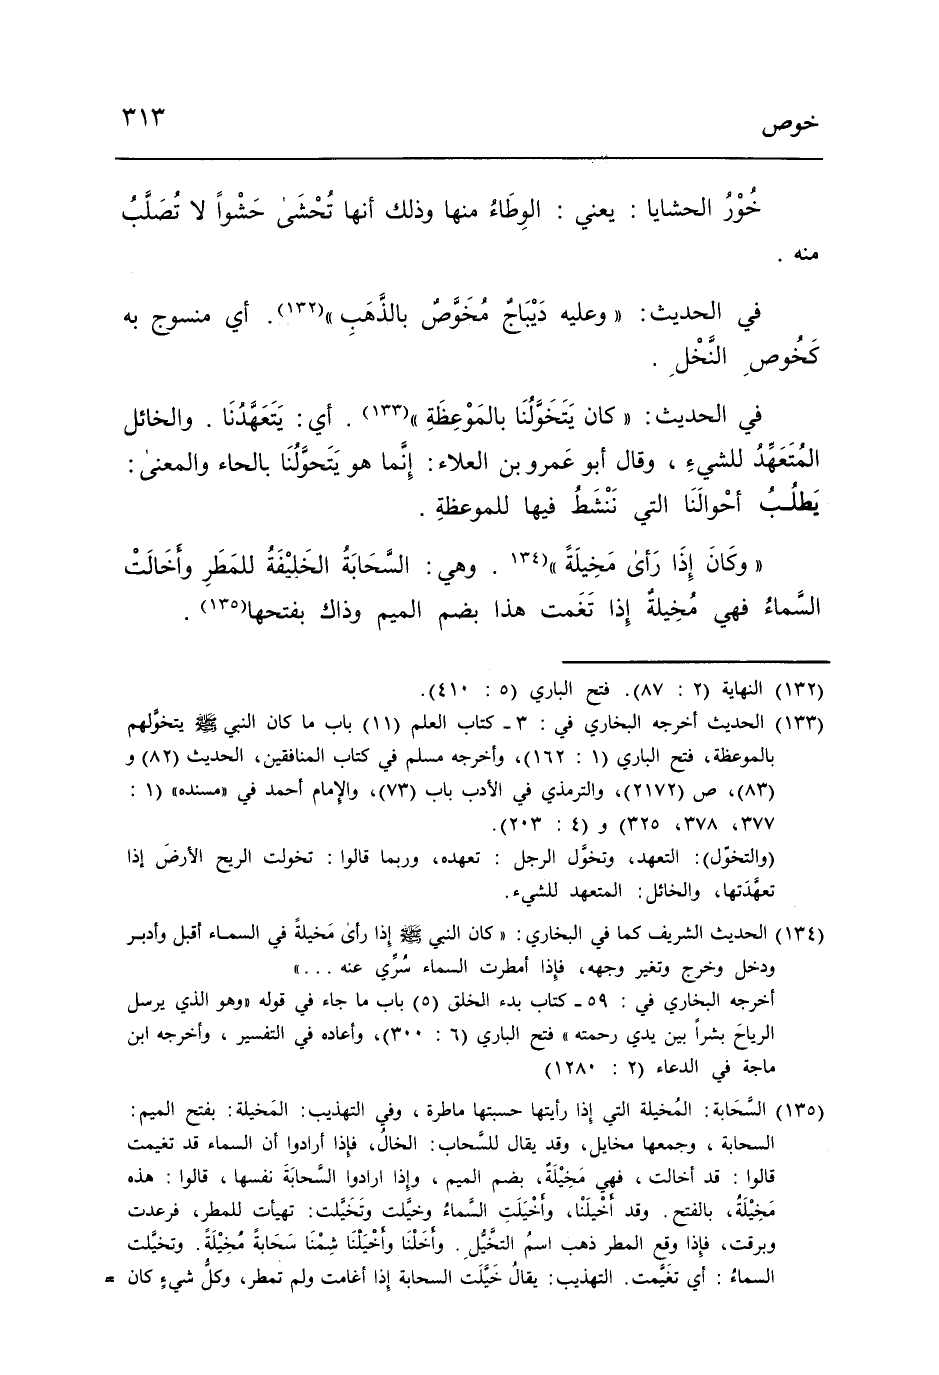 خوص ٣١٣
خُوْرُ الحشايا : يعني : الوِطَاءُ منها وذلك أنها تُحْشَىٰ حَشْواً لا تُصَلَّبُ
منه .
في الحديث : « وعليه دَيْبَاجٌ مُخَوَّصٌ بالذَّهَبِ »(١٣٢). أي منسوج به
كَخُوصِ النَّخْلِ .
في الحديث : « كان يَتَخَوَّلُنَا بالمَوْعِظَةِ »(١٣٣) . أي : يَتَعَهَّدُنَا . والخائل
المُتَعَهِّدُ للشيءِ ، وقال أبو عَمرو بن العلاء : إِنَّما هو يَتَحوَّلُنَا بالحاء والمعنىٰ :
يَطلُبُ أحْوالَنَا التي نَنْشَطُ فيها للموعظةِ .
« وكَانَ إِذَا رَأىٰ مَخِيلَةً »(١٣٤ . وهي : السَّحَابَةُ الخَلِيْفَةُ للمَطَرِ وأَخَالَتْ
السَّماءُ فهي مُخِيلةٌ إِذا تَغَمت هذا بضم الميم وذاك بفتحها(١٣٥) .
(١٣٢) النهاية (٢ : ٨٧). فتح الباري (٥ : ٤١٠).
(١٣٣) الحديث أخرجه البخاري في : ٣ ـ كتاب العلم (١١) باب ما كان النبي ﷺ يتخوَّلهم
بالموعظة، فتح الباري (١ : ١٦٢)، وأخرجه مسلم في كتاب المنافقين، الحديث (٨٢) و
(٨٣)، ص (٢١٧٢)، والترمذي في الأدب باب (٧٣)، والإمام أحمد في «مسنده» (١ :
٣٧٧، ٣٧٨، ٣٢٥) و (٤ : ٢٠٣).
(والتخوّل): التعهد، وتخوَّل الرجل : تعهده، وربما قالوا : تخولت الريح الأرضَ إذا
تعهَّدَتها، والخائل : المتعهد للشيء.
(١٣٤) الحديث الشريف كما في البخاري : « كان النبي ﷺ إذا رأىٰ مَخيلةً في السماء أقبل وأدبر
ودخل وخرج وتغير وجهه، فإذا أمطرت السماء سُرِّي عنه ...»
أخرجه البخاري في : ٥٩ ـ كتاب بدء الخلق (٥) باب ما جاء في قوله «وهو الذي يرسل
الرياحَ بشراً بين يدي رحمته » فتح الباري (٦ : ٣٠٠)، وأعاده في التفسير ، وأخرجه ابن
ماجة في الدعاء (٢ : ١٢٨٠)
(١٣٥) السَّحَابة: المُخيلة التي إذا رأيتها حسبتها ماطرة ، وفي التهذيب: المَخيلة: بفتح الميم:
السحابة ، وجمعها مخايل، وقد يقال للسَّحاب: الخالُ، فإذا أرادوا أن السماء قد تغيمت
قالوا : قد أخالت ، فهي مَخِيْلَةٌ، بضم الميم ، وإذا ارادوا السَّحابَةَ نفسها ، قالوا : هذه
مَخِيْلَةُ، بالفتح. وقد أَخْيَلْنَا، وأَخْيَلَتِ السَّماءُ وخيَّلت وتَخَيَّلت: تهيأت للمطر، فرعدت
وبرقت، فإذا وقع المطر ذهب اسمُ التخَيُّلِ. وأَخَلْنَا وأَخْيَلْنَا شِمْنَا سَحَابةً مُخِيْلَةً. وتخيَّلت
السماءُ : أي تغَيَّمت. التهذيب: يقالُ خَيَّلَت السحابة إذا أغامت ولم تمطر، وكلُّ شيءٍ كان =